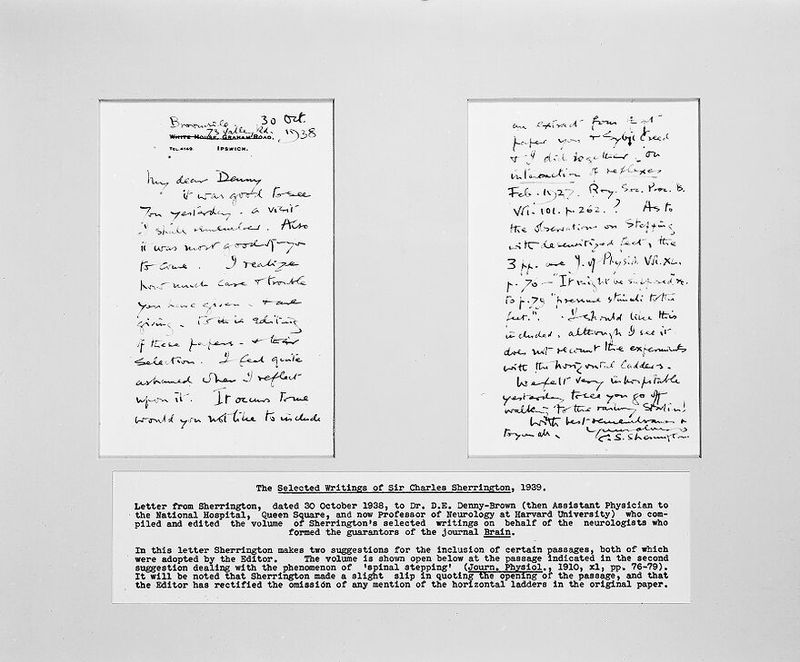 30 Oct.
73 Valley Rd. , 1938
WHITE HOUSE, GRAHAM ROAD,
IPSWICH.
My dear Denny
it was good to see
you yesterday. a visit
I shall remember. Also
it was most good of you
to come. I realize
how much care & trouble
you have given - & are
giving - to this editing
of these papers - & their
selection. I feel quite
ashamed when I reflect
upon it. It occurs to me
would you not like to include
an extract from that
paper you & Sybil Creed
& I did together, on
interaction of reflexes
Feb. 1927. Roy. Soc. Proc. B.
Vol. 101. p. 262. ? As to
the observations on Stepping
with desensitized feet, the
3 pp. are J. of Physiol. Vol. XL.
p. 70 — "It might be supposed &c.
to p. 79 "pressure stimuli to the
feet." I should like this
included, although I see it
does not recount the experiments
with the horizontal ladders.
We felt very inhospitable
yesterday to see you go off
walking to the railway station!
With best remembrances
to you all.
C. S. Sherrington
The Selected Writings of Sir Charles Sherrington, 1939.
Letter from Sherrington, dated 30 October 1938, to Dr. D.E. Denny-Brown (then Assistant Physician to
the National Hospital, Queen Square, and now Professor of Neurology at Harvard University) who com-
piled and edited the volume of Sherrington's selected writings on behalf of the neurologists who
formed the guarantors of the journal Brain.
In this letter Sherrington makes two suggestions for the inclusion of certain passages, both of which
were adopted by the Editor. The volume is shown open below at the passage indicated in the second
suggestion dealing with the phenomenon of 'spinal stepping' (Journ. Physiol., 1910, xl, pp. 76-79).
It will be noted that Sherrington made a slight slip in quoting the opening of the passage, and that
the Editor has rectified the omission of any mention of the horizontal ladders in the original paper.